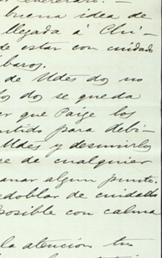 buena idea de
llegada á Chi-
de estar con cuidado
beros.
de Uldes do no
do se queda
er que Paize los
ntido para debi-
Uldes y desunirlos
de cualquier
anar algun punti-
edoblar de cuidado
posible con calma
la atencion tu